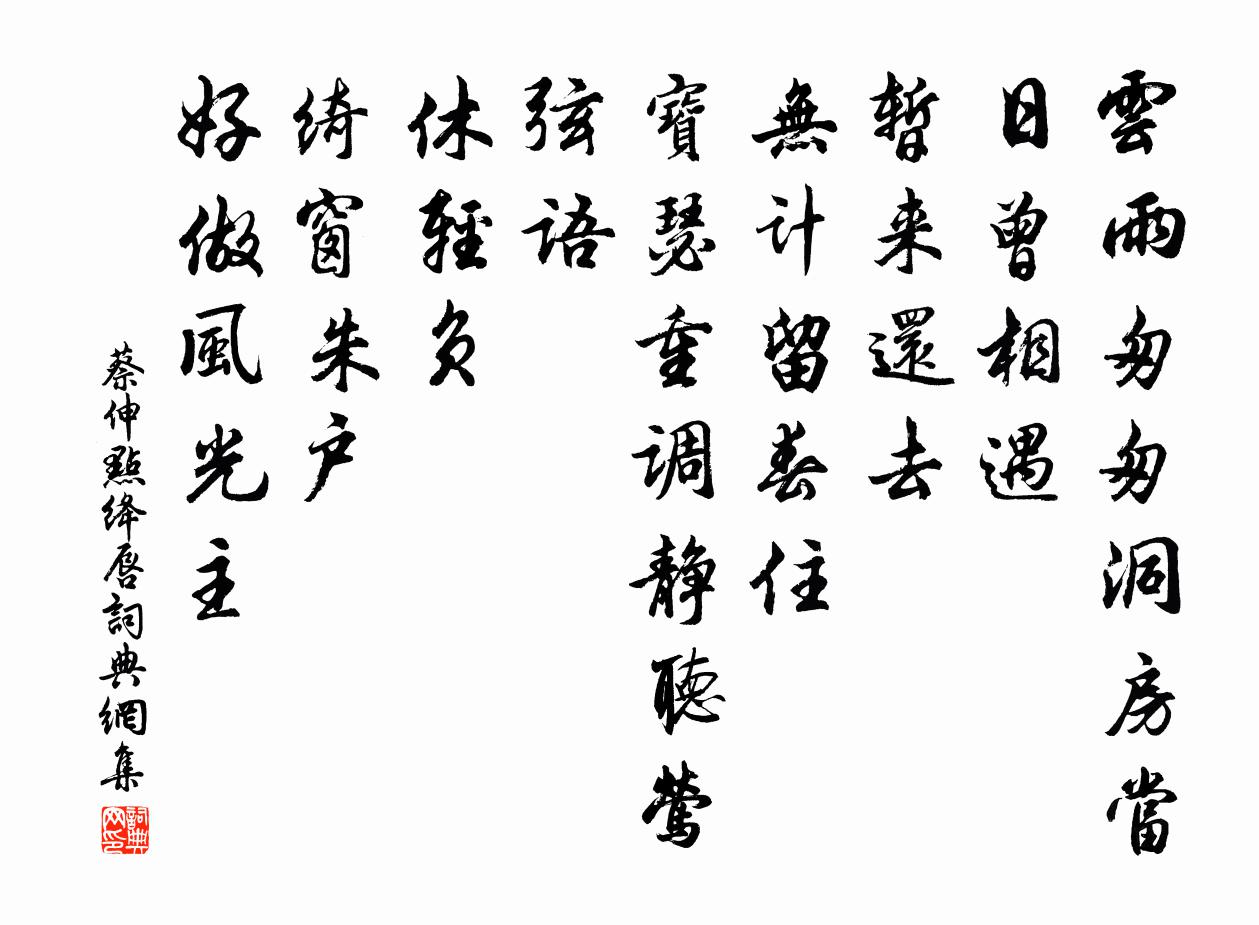 雲雨匆匆洞房當
日曾相遇
暫来還去
無计留春住
寶瑟重调静聽鶯
弦语
休輕负
绮窗朱户
好做風光主
蔡伸點绛唇詞典網集
詞典
网印